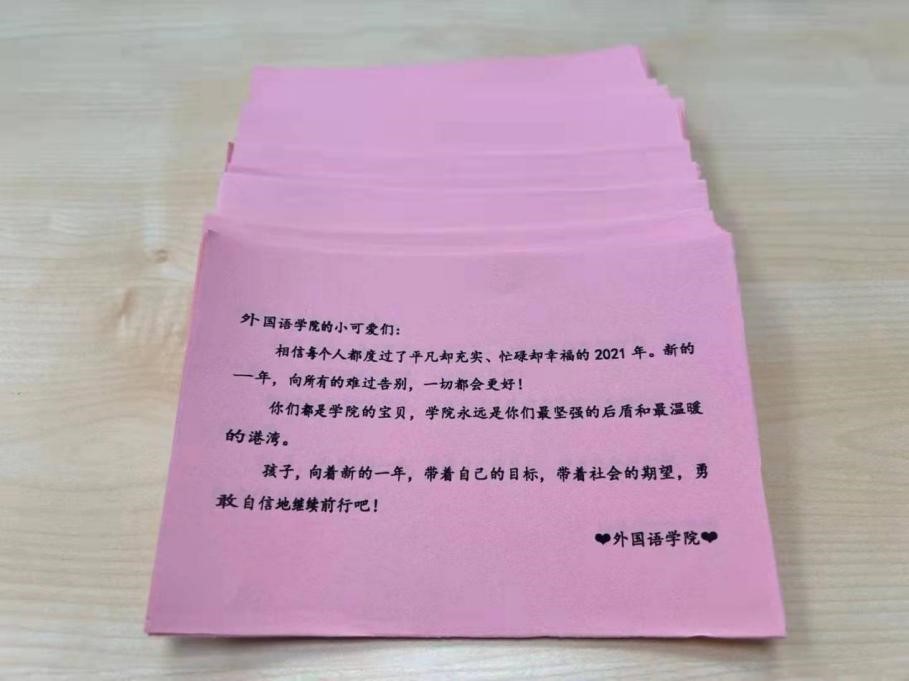 外国语学院的小可爱们：
相信每个人都度过了平凡却充实、忙碌却幸福的 2021 年。新的
一年，向所有的难过告别，一切都会更好！
你们都是学院的宝贝，学院永远是你们最坚强的后盾和最温暖
的港湾。
孩子，向着新的一年，带着自己的目标，带着社会的期望，勇
敢自信地继续前行吧！
❤外国语学院❤